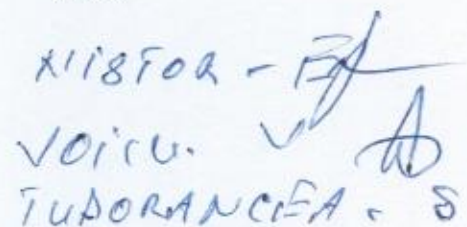 NISTOR -
VOICU. V
TUDORANCEA. S